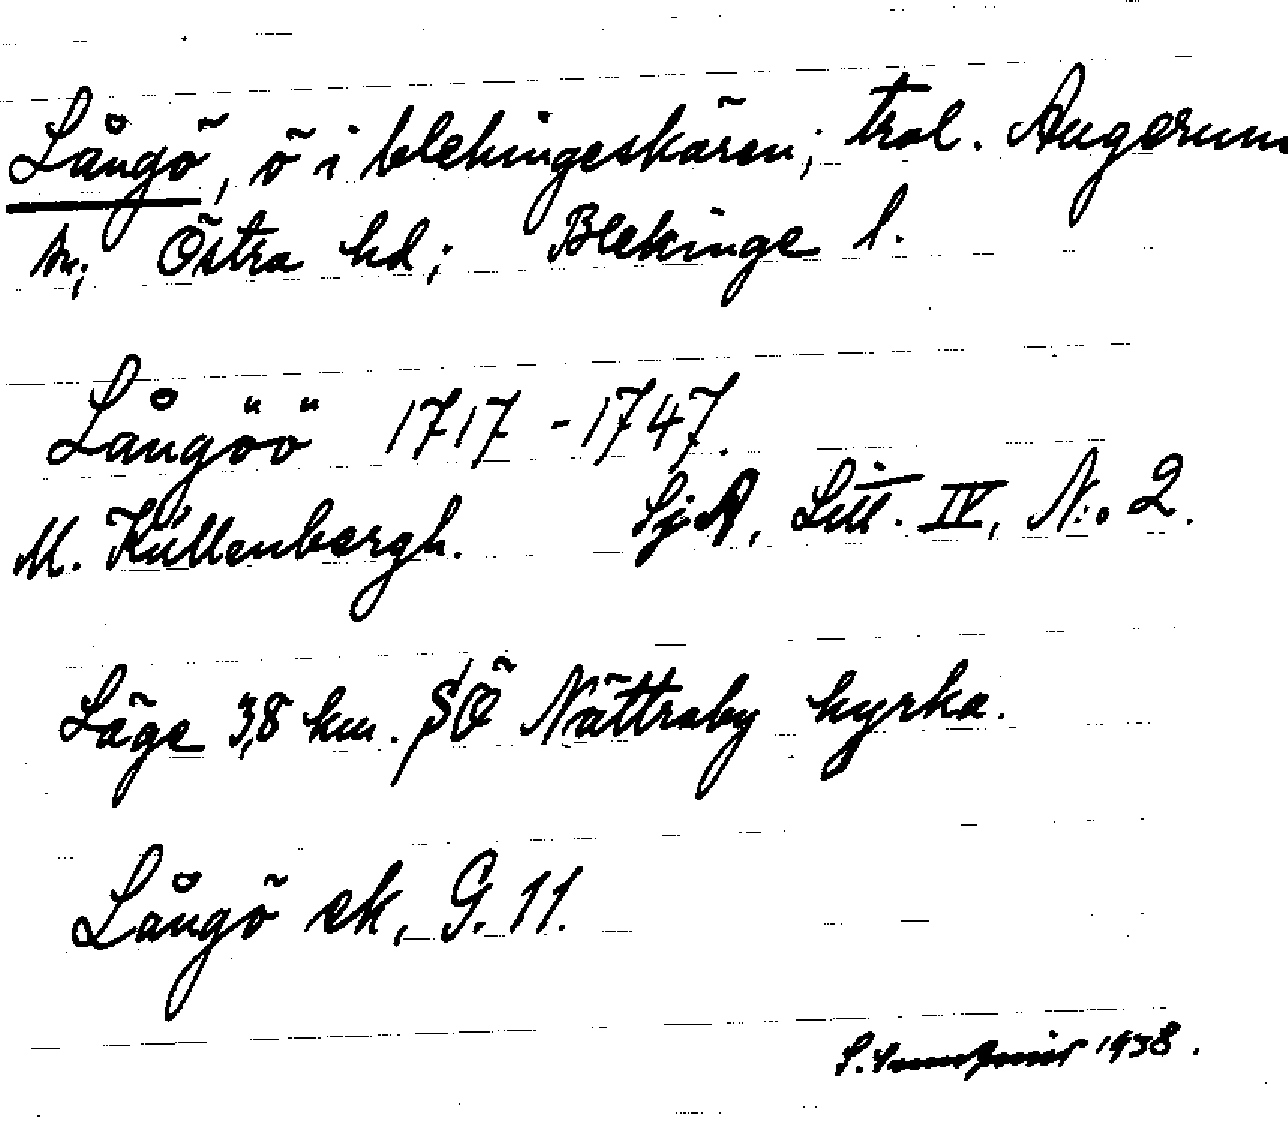 Långö, ö i blekingeskären; trol. Augerum
sn; Östra hd; Blekinge l.
Långöö 1717-1747.
M. Küllenbergh. SjA, Litt. IV, N:o 2.
Läge 3,8 km. SÖ Nättraby kyrka.
Långö ek, G. 11.
1938.